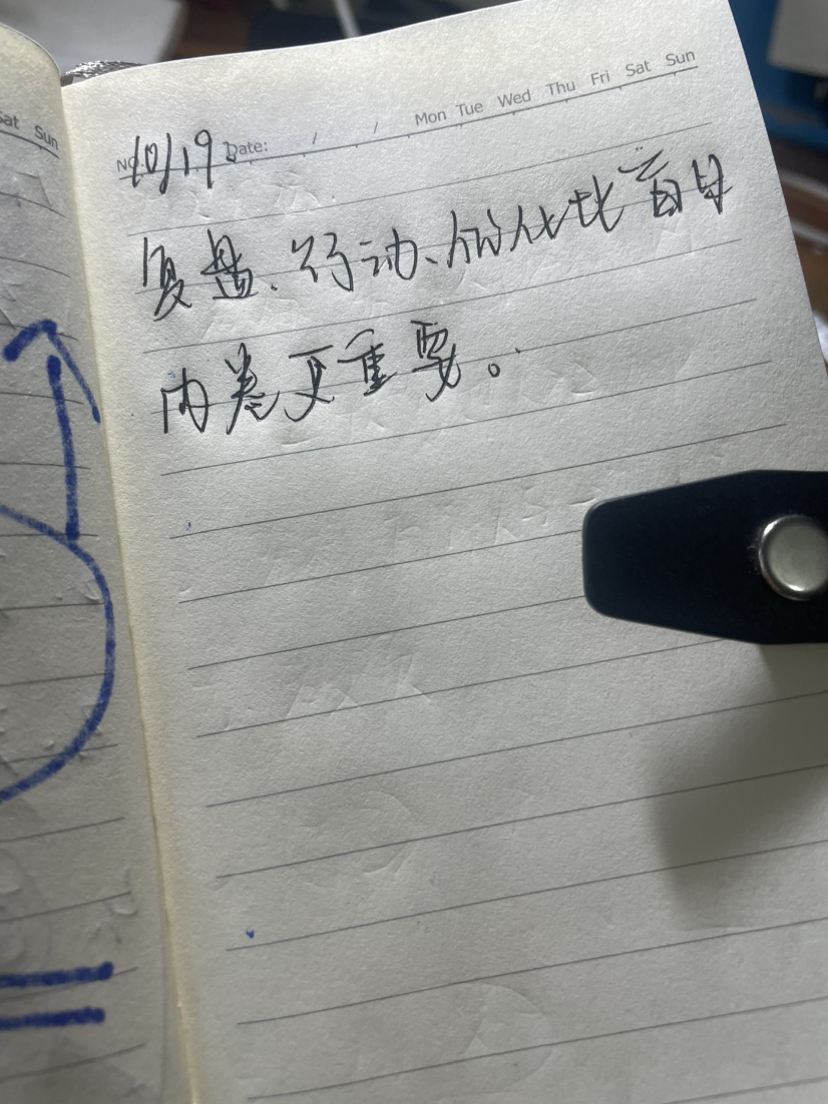 Sat Sun
Mon Tue Wed Thu Fri Sat Sun
NO. 10/19 Date: / /
复盘、行动、优化比盲目
内卷更重要。